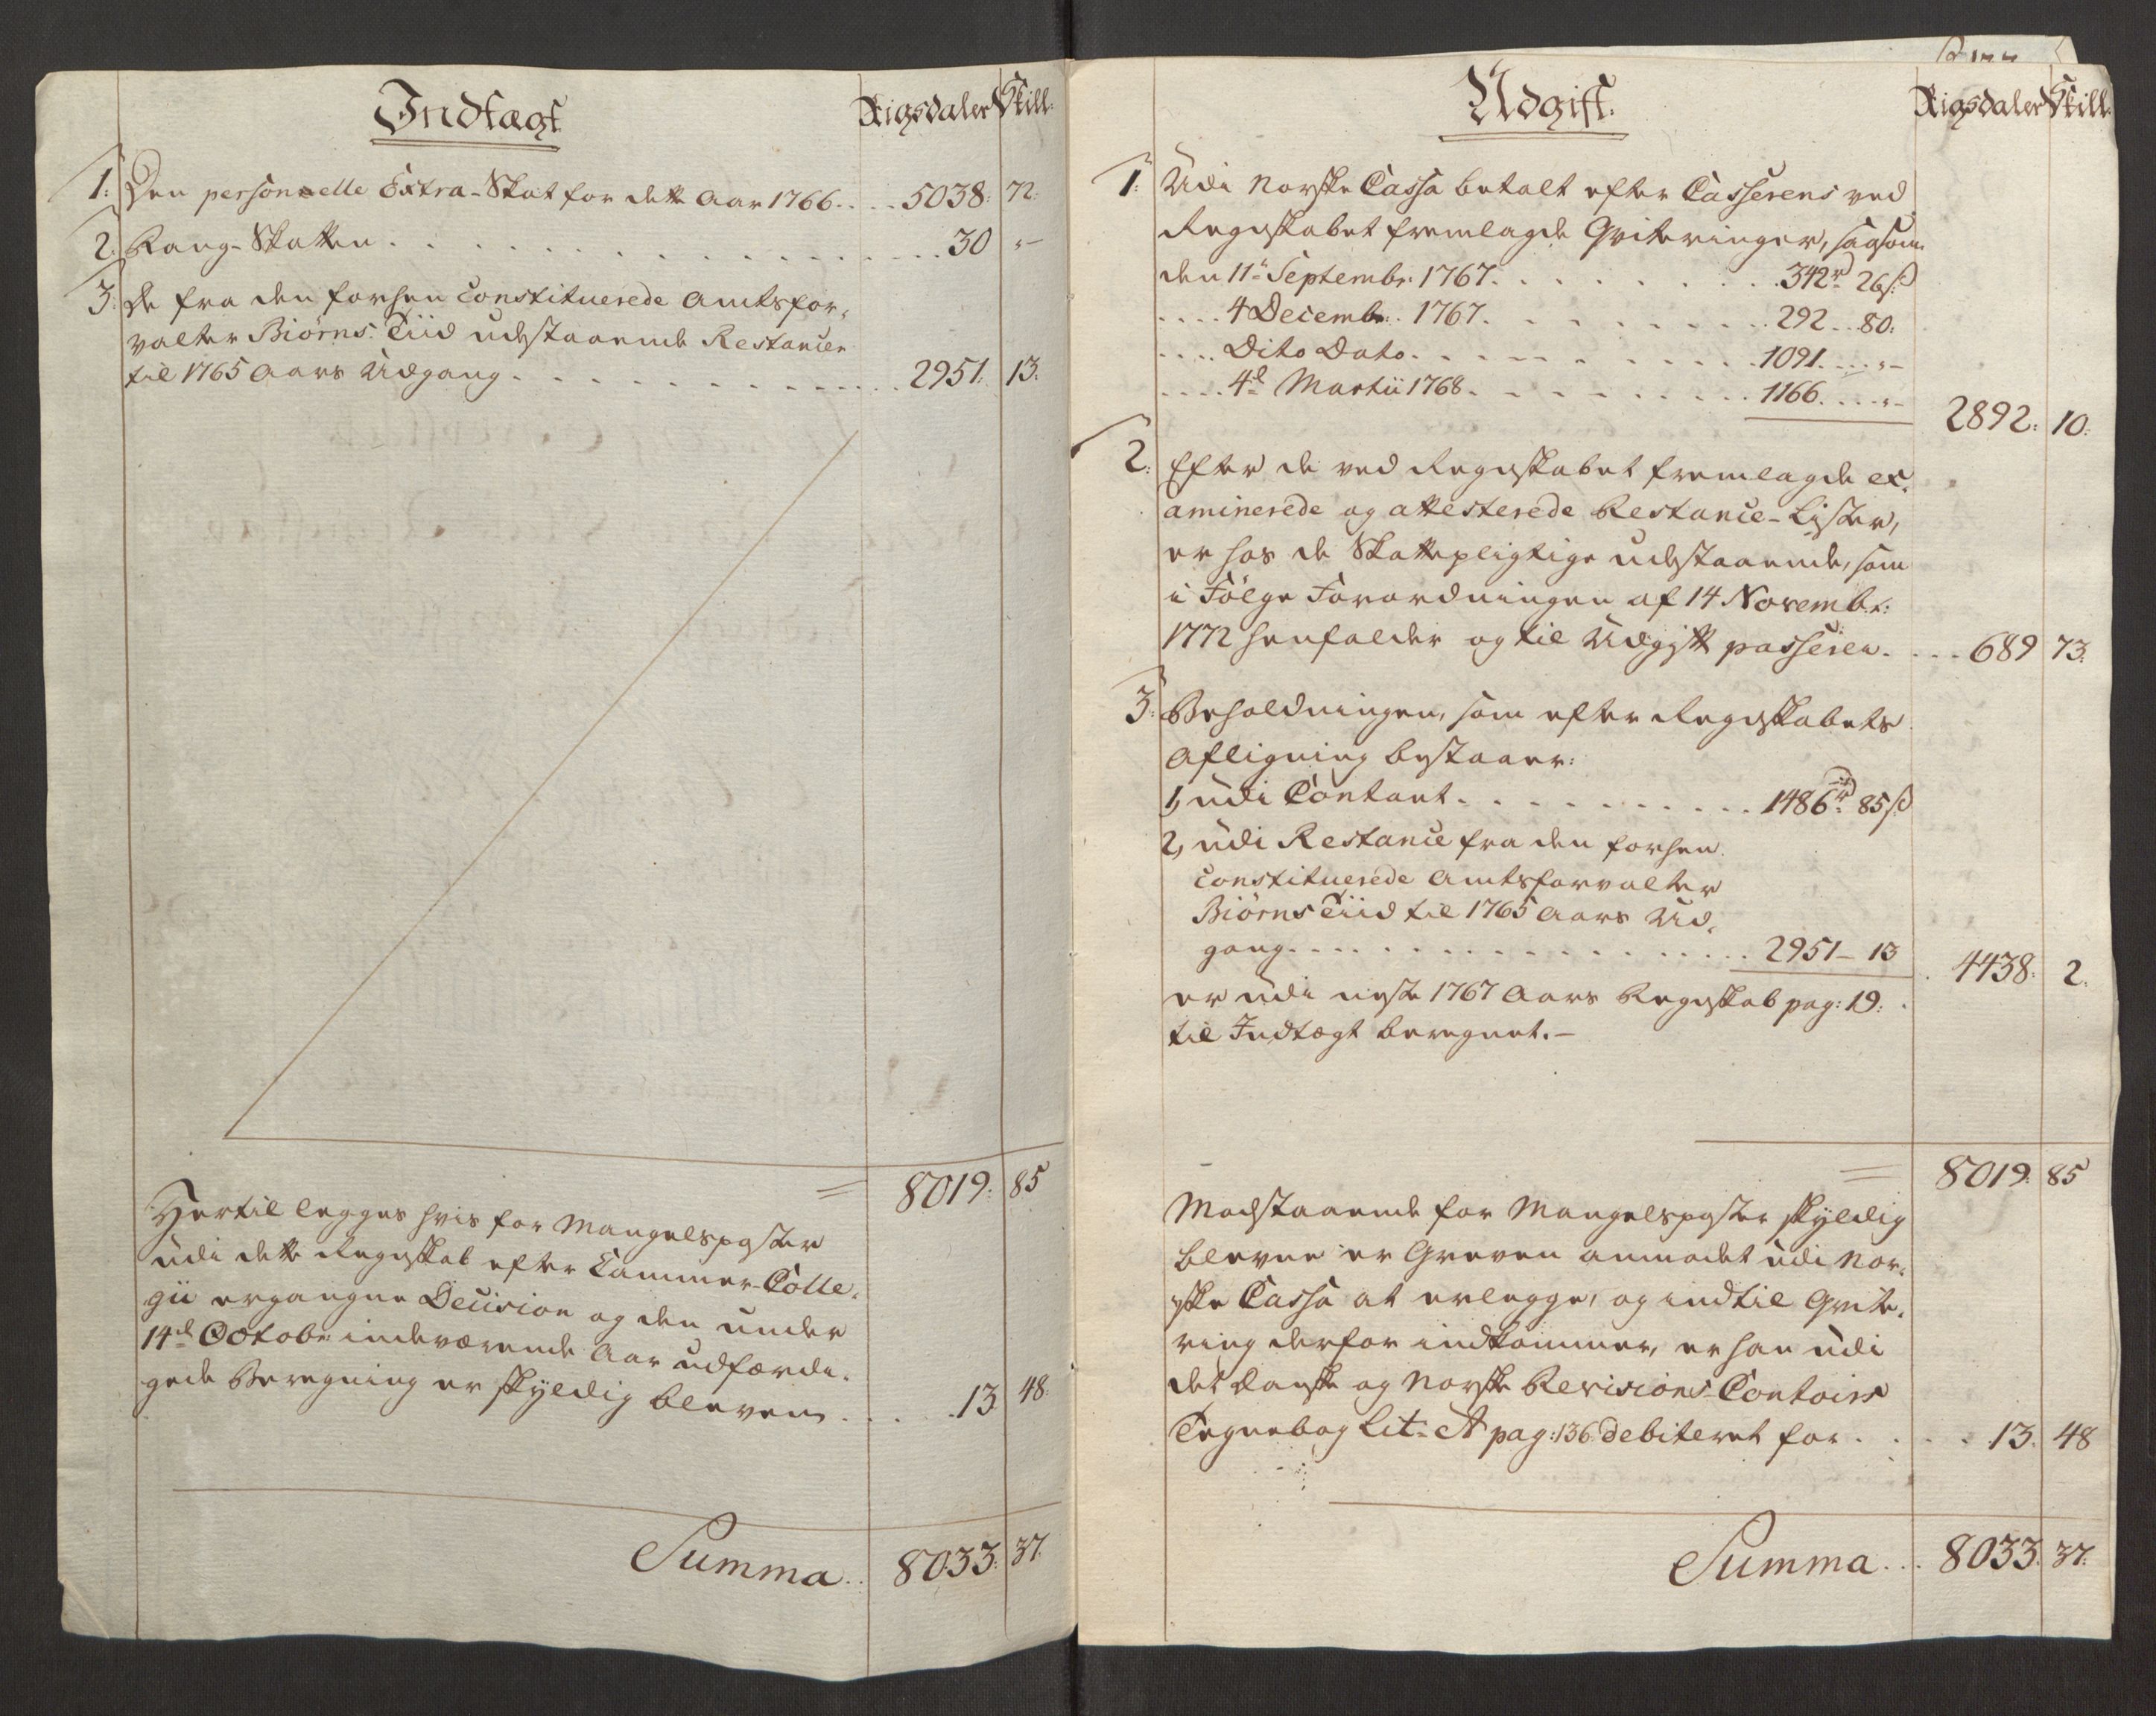 Indtægt.
Rigsdaler Skill:
1. Den personnelle Extra-Skat for dette Aar 1766. . . . 5038: 72.
2. Rang-Skatten . . . . . . . . . . . . 30 "-
3. De fra den forhen Constituerede Amtsfor-
valter Biørns Tiid udestaaende Restancer
til 1765 Aars Udgang . . . . . . . . . . 2951. 13.
8019: 85
Hertil legges hvis for Mangelsposter
udi dette Regnskab efter Cammer-Colle-
gii ergangne Decision og den under
14de Octobr: indeværende Aar udfærdi-
gede Beregning er skyldig bleven . . . . 13 48.
Summa . . 8033: 37.
Udgift.
Rigsdaler Skill:
1. Udi Norske Cassa betalt efter Casserens ved
Regnskabet fremlagde Qviteringer, saasom
den 11te Septembr: 1767. . . . . . . . . 342rd 26ß
. . . . 4 Decembr: 1767. . . . . . . . . 292 . . . 80.
. . . . Dito Dato . . . . . . . . . . 1091. . . . "-
. . . . 4de Martii 1768 . . . . . . . . . 1166. . . . "-
2892: 10.
2. Efter de ved Regnskabet fremlagde ex-
aminerede og attesterede Restance-Lister,
er hos de Skattepligtige udestaaende, som
i Følge Forordningen af 14 Novembr:
1772 henfalder og til Udgift passerer. . . . 689 73.
3. Beholdningen, som efter Regnskabets
Afligning bestaaer:
1, udi Contant . . . . . . . . . . 1486rd 85ß
2, udi Restance fra den forhen
Constituerede Amtsforvalter
Biørns Tiid til 1765 Aars Ud-
gang. . . . . . . . . . . . . . 2951 – 13
4438: 2.
er udi neste 1767 Aars Regnskab pag: 19:
til Indtægt beregnet. –
8019: 85
Modstaaende for Mangelsposter skyldig
blevne er Greven anmodet udi Nor-
ske Cassa at erlegge, og indtil Qvite-
ring derfor indkommer, er han udi
det Danske og Norske Revisions-Contoirs
Tegnebog Lit: A pag: 136. debiteret for . . . . 13. 48
Summa . . . 8033. 37.